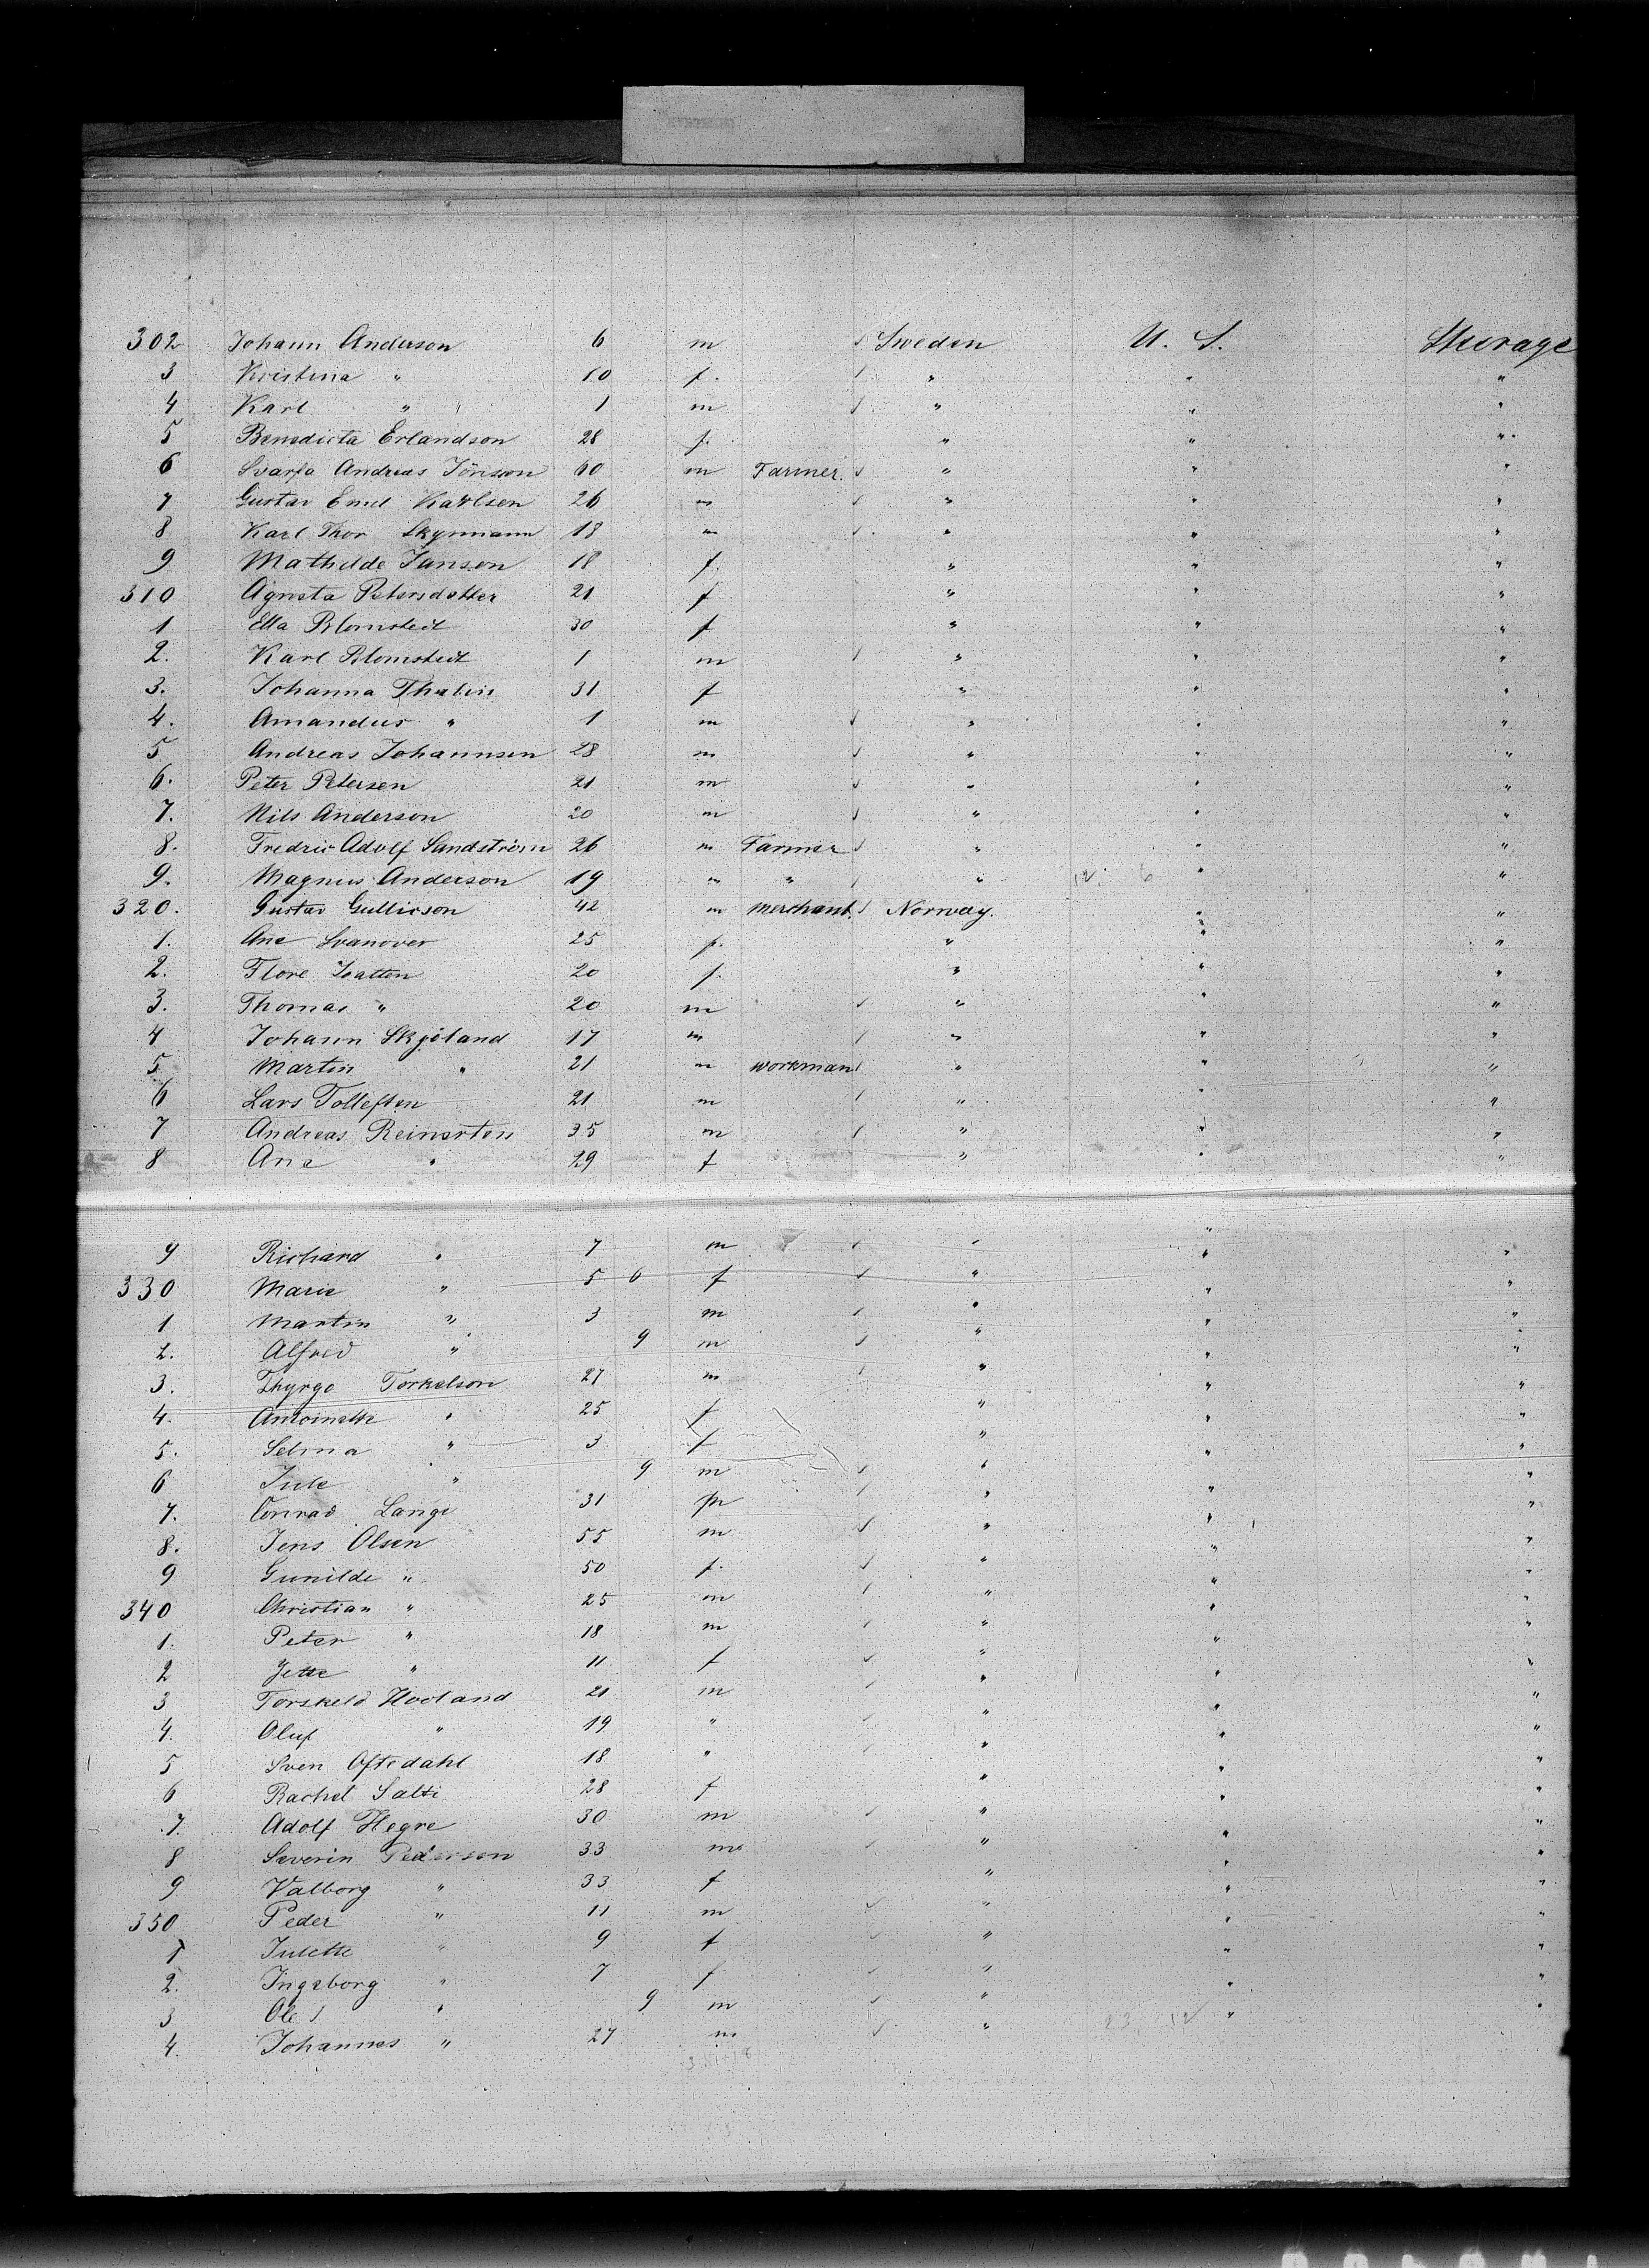 302 Johann Anderson 6 m Sweden U. S. Steerage
3 Kristina " 10 f. " " "
4 Karl " 1 m " " "
5 Benedicta Erlandson 28 f. " " "
6 Andreas Jönsson 60 m Farmer. " " "
7 Gustav Emil Karlsen 26 m " " "
8 Karl Thor Skynmann 18 m " " "
9 Mathilde Janson 18 f. " " "
310 Agneta Petersdotter 21 f " " "
1 Ella Blomstedt 30 f " " "
2. Karl Blomstedt 1 m " " "
3. Johanna Thalin 31 f " " "
4. Amandus " 1 m " " "
5 Andreas Johannsen 28 m " " "
6. Peter Petersen 21 m " " "
7. Nils Anderson 20 m " " "
8. Fredric Adolf Sandström 26 m Farmer " " "
9. Magnus Anderson 19 m " " " "
320. Gustav Gullicson 42 m merchant. Norway. " "
1. Ane Svanover 25 f. " " "
2. Flore 20 f. " " "
3. Thomas " 20 m " " "
4 Johann Skjöland 17 m " " "
5 Martin " 21 m workman " " "
6 Lars Tollefsen 21 m " " "
7 Andreas Reinertsen 35 m " " "
8 Ane " 29 f " " "
9 Richard " 7 m " " "
330 Marie " 5 6 f " " "
1 Martin " 3 m " " "
2. Alfred " 9 m " " "
3. Thyrge Torkelson 27 m " " "
4. Antoinette " 25 f " " "
5. Selma " 3 f " " "
6 Jule " 9 m " " "
7. Conrad Lange 31 m " " "
8. Jens Olsen 55 m " " "
9 Gunilde " 50 f. " " "
340 Christian " 25 m " " "
1. Peter " 18 m " " "
2 Jette " 11 f " " "
3 Torskeld Hovland 21 m " " "
4. Oluf " 19 " " " "
5 Sven Oftedahl 18 " " " "
6 Rachel Salti 28 f " " "
7. Adolf Hegre 30 m " " "
8 Severin Pederson 33 m " " "
9 Valborg " 33 f " " "
350 Peder " 11 m " " "
1 Julette " 9 f " " "
2. Ingeborg " 7 f " " "
3 Ole " 9 m " " "
4. Johannes " 27 m " "